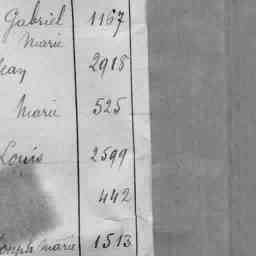 Gabriel 1167
Marie
Jean 2918
Marie 525
Louis 2599
442
Joseph Marie 1513